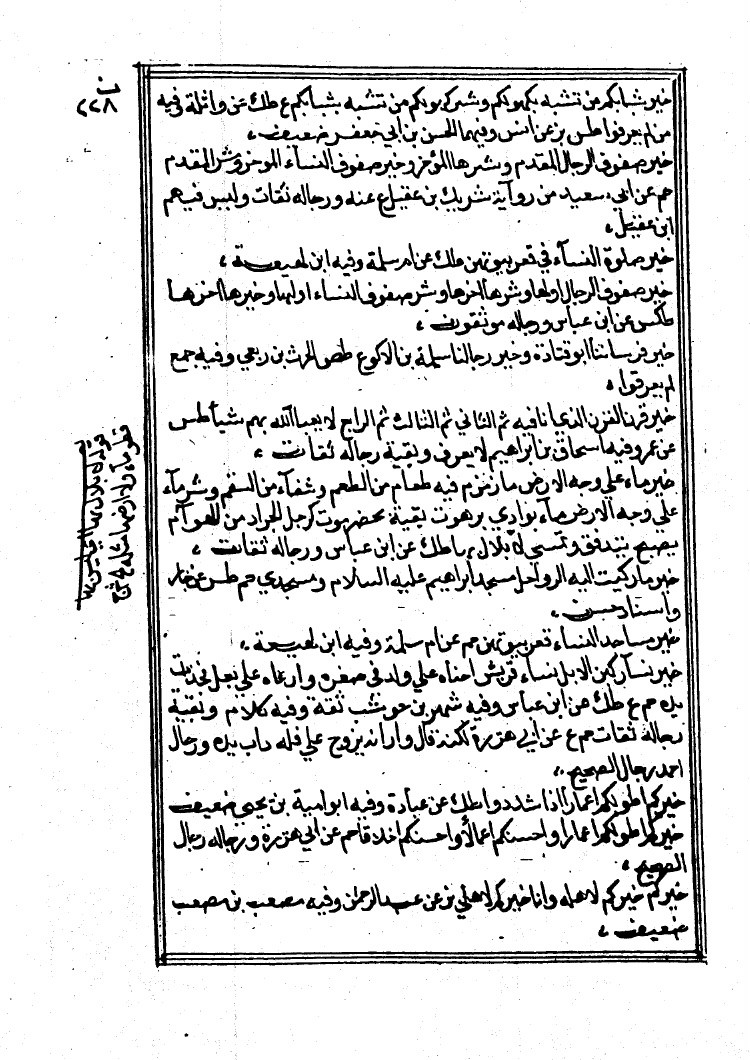 ن
٢٢٨
خير شبابكم من تشبه بكهولكم وشر كهولكم من تشبه بشبابكم ع طك عن واثلة وفيه
من لم يعرفوا طس بز عن انس وفيهما الحسن بن ابي جعفر ضعيف ،
خير صفوف الرجال المقدم وشرها المؤخر وخير صفوف النساء الموخر وشر المقدم
حم عن ابي سعيد من رواية شريك بن عقيل ع عنه ورجاله ثقات وليس فيهم
ابن عقيل ،
خير صلوة النسآء في قعر بيوتهن طك عن ام سلمة وفيه ابن لهيعة ،
خير صفوف الرجال اولها وشرها آخرها وشر صفوف النساء اولها وخيرها آخرها
طكس عن ابن عباس ورجاله موثقون ،
خير فرساننا ابو قتادة وخير رجالنا سلمة بن الاكوع طص الحرث بن ربعي وفيه جمع
لم يعرفوا ،
خير قرن القرن الذي انا فيه ثم الثاني ثم الثالث ثم الرابع لا يعبا الله بهم شيأ طس
عن عمر وفيه اسحاق بن ابراهيم لا يعرف وبقية رجاله ثقات ،
خير ماء علي وجه الارض ماء زمزم فيه طعام من الطعم وشفاء من السقم وشر مآء
علي وجه الارض مآء بوادي برهوت بقبة بحضرموت كرجل الجراد من الهوآم
يصبح يتدفق وتمسي لا بلال بها طك عن ابن عباس ورجاله ثقات ،
خير ما ركبت اليه الرواحل مسجد ابراهيم عليه السلام ومسجدي حم طس عن جابر
واسناد حسن ،
خير مساجد النساء قعر بيوتهن حم عن ام سلمة وفيه ابن لهيعة ،
خير نساء ركبن الابل نساء قريش احناه علي ولد في صغره وارعاه علي بعل في ذات
يده حم ع طك عن ابن عباس وفيه شهر بن حوشب ثقة وفيه كلام وبقية
رجاله ثقات حم ع عن ابي هريرة لكنه قال وارأفه بزوج علي قلة ذات يده ورجال
احمد رجال الصحيح ،
خيركم اطولكم اعمارا اذا سددوا طك عن عبادة وفيه ابو امية بن يحيى ضعيف
خيركم اطولكم اعمارا واحسنكم اعمالا واحسنكم اخلاقا حم عن ابي هريرة ورجاله رجال
الصحيح ،
خيركم خيركم لاهله وانا خيركم لاهلي بز عن عبد الرحمن وفيه مصعب بن مصعب
ضعيف ،
قوله لا بلال بها اي ليس بها